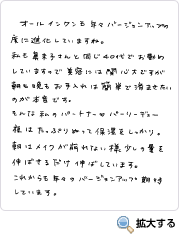 オールインワンも年々バージョンアップの
度に進化していますね。
私も葉子さんと同じ40代でお勤め
していますので美容には関心大ですが
朝も晩もお手入れは簡単で済ませたい
のが本音です。
そんな私のパートナー♥パーリーデュー
夜はたっぷりぬって保湿をしっかり。
朝はメイクが崩れない様少しの量を
伸ばせるだけ伸ばしています。
これからも年々のバージョンアップ期待
しています。
拡大する